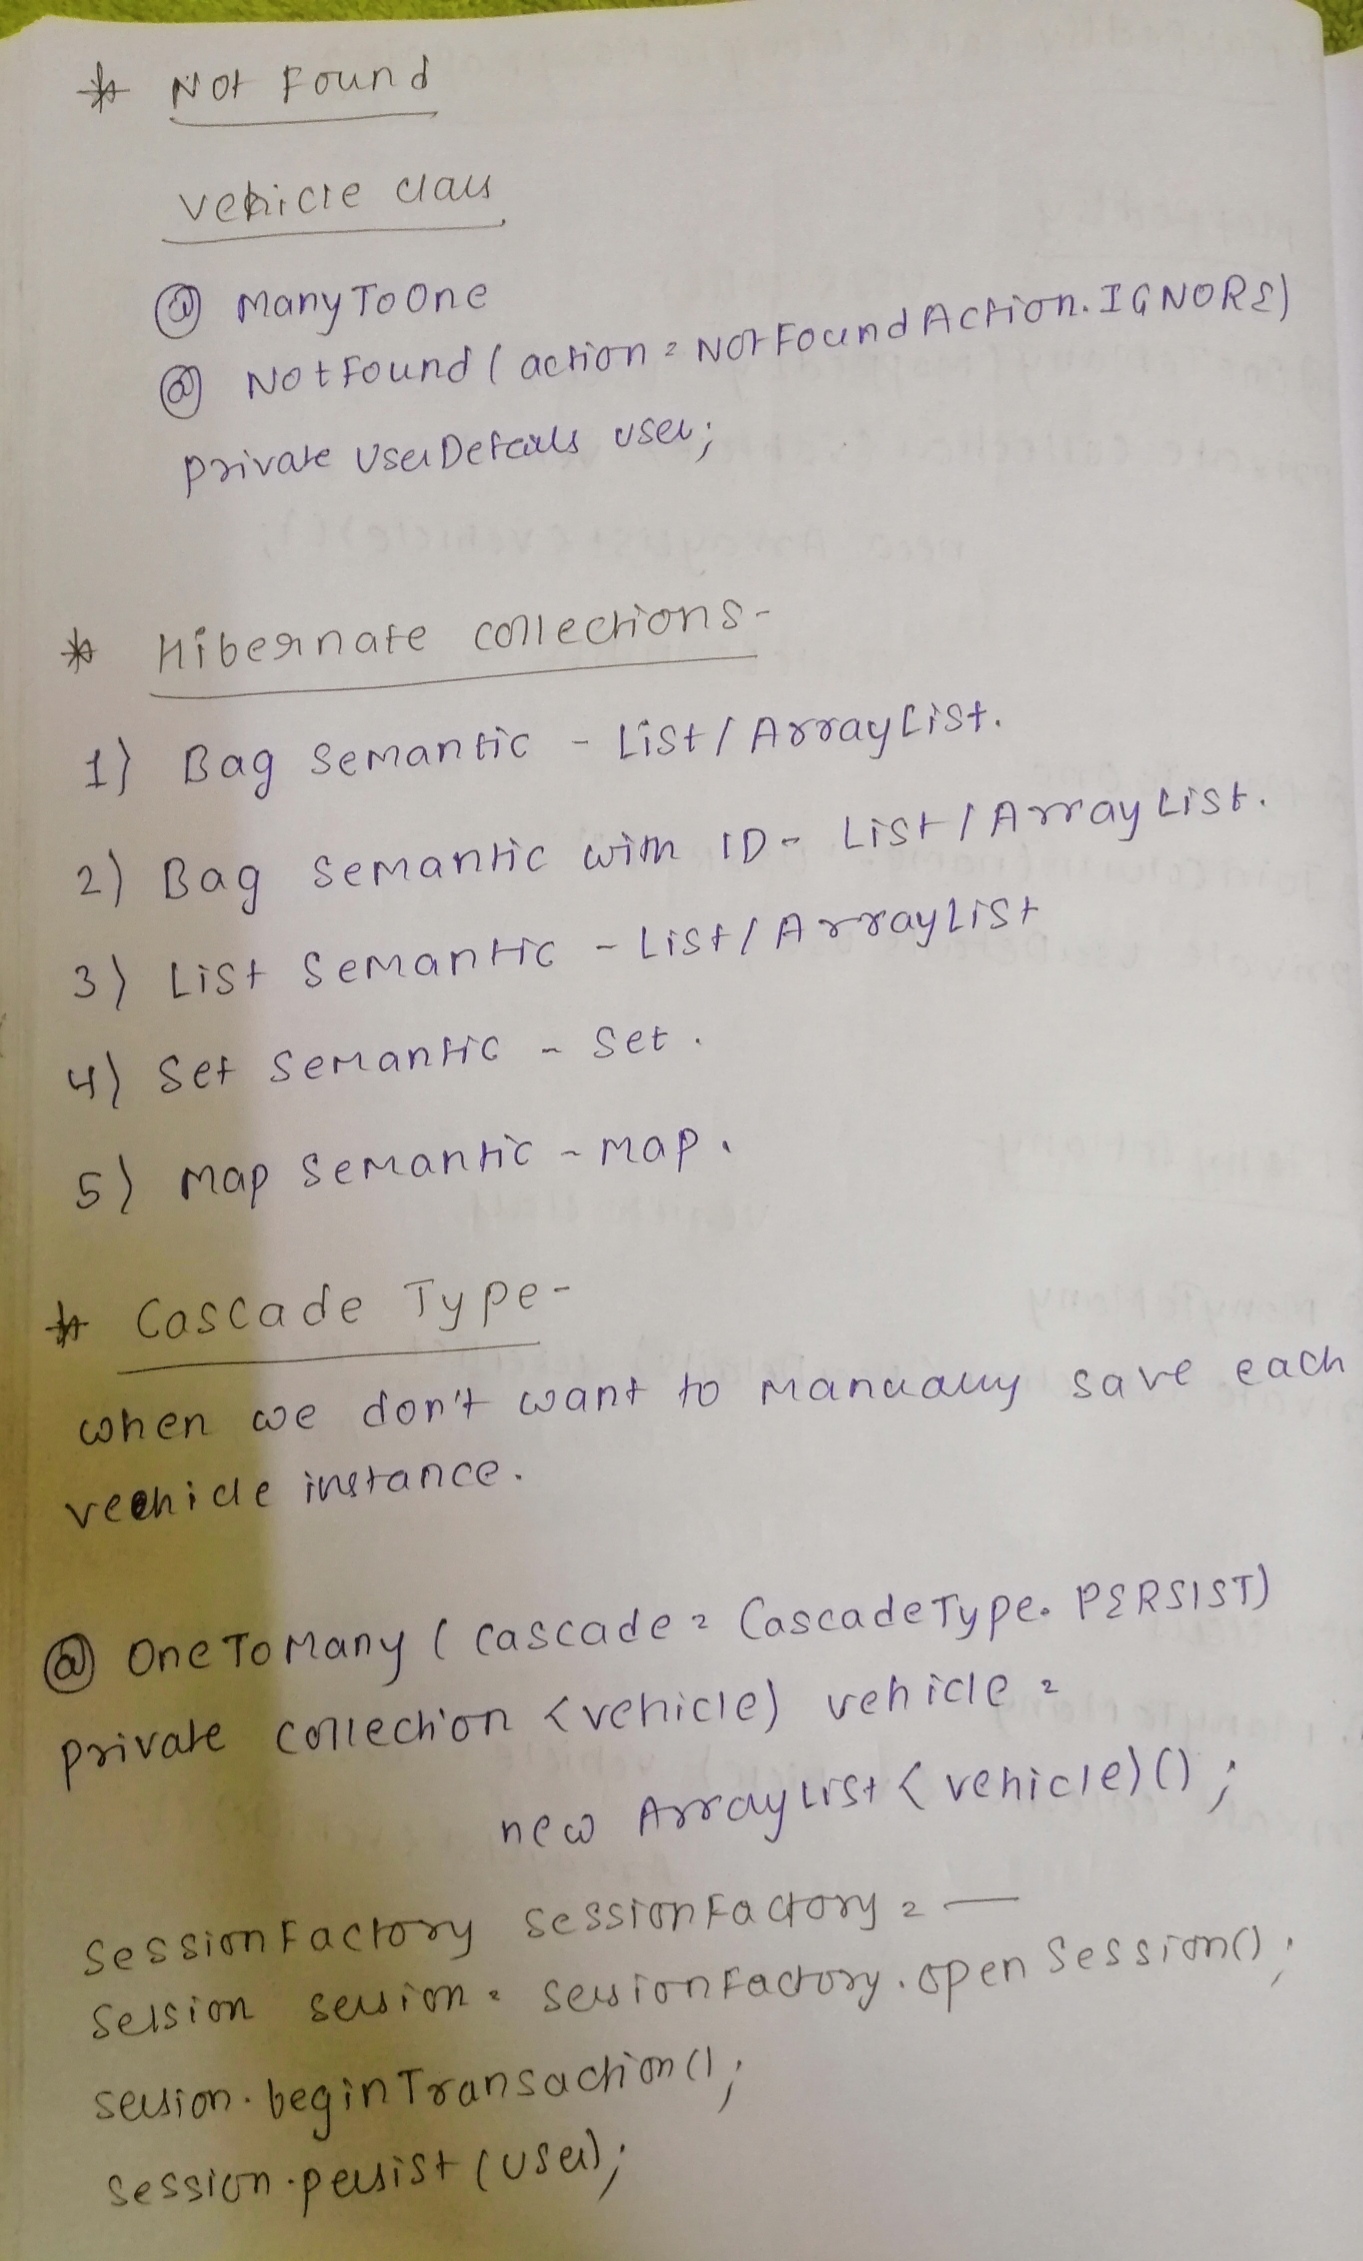 * Not Found
Vehicle class
@ ManyToOne
@ NotFound (action = NotFoundAction.IGNORE)
private UserDetails user;
* Hibernate collections-
1) Bag Semantic - List / ArrayList.
2) Bag Semantic with ID - List / ArrayList.
3) List Semantic - List / ArrayList
4) Set Semantic - Set.
5) Map Semantic - Map.
* Cascade Type-
when we don't want to manually save each
vechicle instance.
@ OneToMany ( cascade = CascadeType. PERSIST)
private collection <vehicle> vehicle =
new ArrayList < vehicle>();
SessionFactory SessionFactory = —
Session session = sessionFactory.open Session();
session.beginTransaction();
session.persist (user);